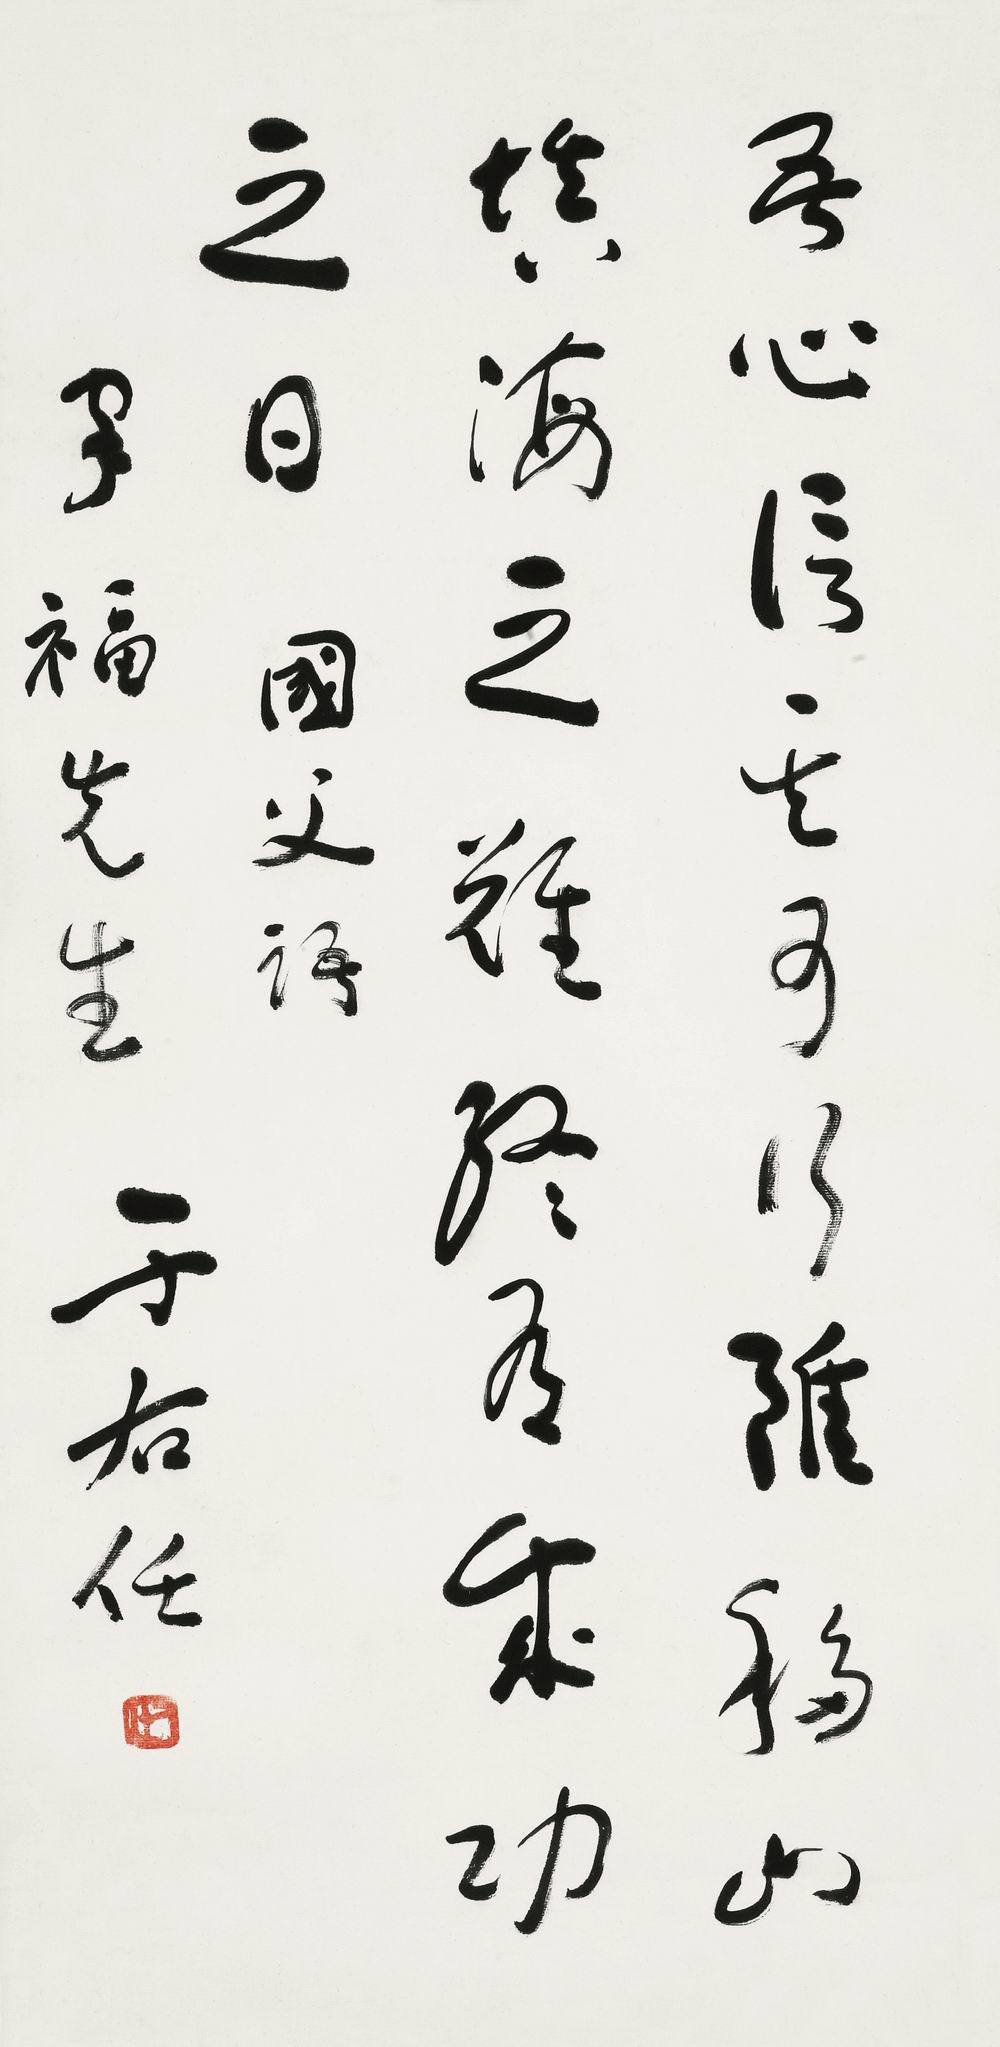 吾心信其可行雖移山
填海之難終有成功
之日 國父語
福先生 于右任